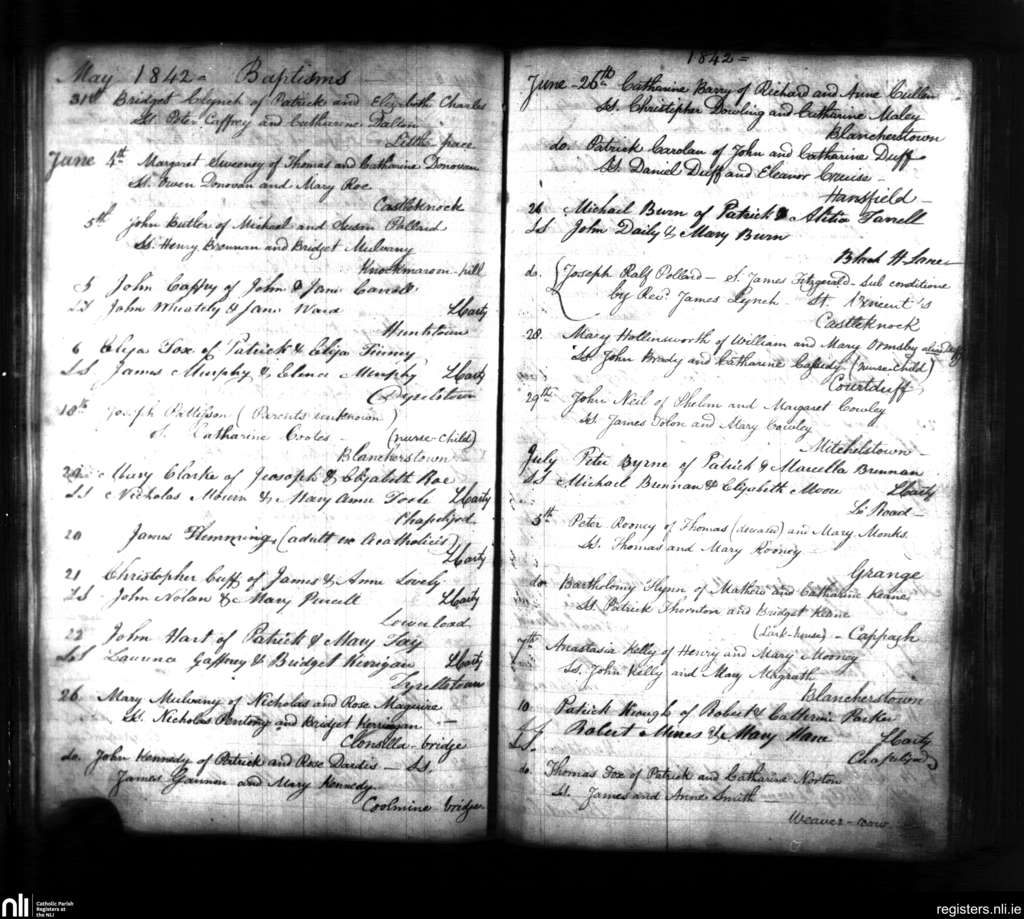 May 1842 = Baptisms
31st Bridget Clynch of Patrick and Elizabeth Charles
Ss. Peter Caffrey and Catharine Dalton
Little pace
June 4th Margaret Sweeney of Thomas and Catharine Donovan
Ss. Owen Donovan and Mary Roe
Castleknock
5th John Butler of Michael and Susan Pollard
Ss Henry Brennan and Bridget Mulvany
Knockmaroon-hill
5 John Caffry of John & Jane Carroll
SS John Wheatly & Jane Ward
Huntstown
6 Eliza Fox of Patrick & Eliza Finny
Ss James Murphy & Elena Murphy
Tyrelstown
18th Joseph Pattisson (Parents unknown)
S. Catharine Cooles - (nurse child)
Blancherstown
Mary Clarke of Jeosoph & Elizabith Roe
SS Nicholas Mourn & Mary Anne Toole
Chapelizod
20 James Flemming (adult ex Acatholicis)
21 Christopher Cuff of James & Anne Lovely
SS John Nolan & Mary Purcell
Lower load
22 John Hart of Patrick & Mary Fay
Ss Laurence Gaffney & Bridget Kerrigan
Tyrellstown
26 Mary Mulvany of Nicholas and Rose Maguire
Ss. Nicholas and Bridget Kerrigan
Clonsilla-bridge
do. John Kennedy of Patrick and Rose Dardis - Ss.
James Gannon and Mary Kennedy
Coolmine bridge
1842 =
June - 26th Catharine Barry of Richard and Anne Cullen
Ss. Christopher Dowling and Catharine Maley
Blancherstown
do. Patrick Carolan of John and Catharine Duff
Ss. Daniel Duff and Eleanor Cruise -
Hansfield -
26 Michael Burn of Patrick & Alitia Farrell
SS John Daily & Mary Burn
Black H Lane
do. Joseph Ralf Pollard - S. James Fitzgerald - sub conditione
by Revd. James Lynch - St. Vincent's
Castleknock
28. Mary Hollinsworth of William and Mary Ormsby
Ss. John Brady and Catharine Cassidy (nurse-child)
Courtduff
29th John Neil of Phelim and Margaret Cowley
Ss. James Tolon and Mary Cowley
Mitchelstown -
July Peter Byrne of Patrick & Marcella Brennan
SS Michael Brennan & Elizabeth Moore
Road -
3th Peter Rooney of Thomas (deceased) and Mary Monks
Ss. Thomas and Mary Rooney -
Grange
do Bartholomy Flynn of Mathew and Catharine Keane
Ss. Patrick Thornton and Bridget Keane
(Lark-house) - Cappagh
7th Anastasia Kelly of Henry and Mary Mooney
Ss. John Kelly and Mary Magrath
Blancherstown
10 Patrick Keough of Robert & Catherin Parker
SS. Robert Mines & Mary Hana
Chapelizod
do. Thomas Fox of Patrick and Catharine Norton
Ss. James and Anne Smith
Weaver-row
nli Catholic Parish
Registers at
the NLI
registers.nli.ie